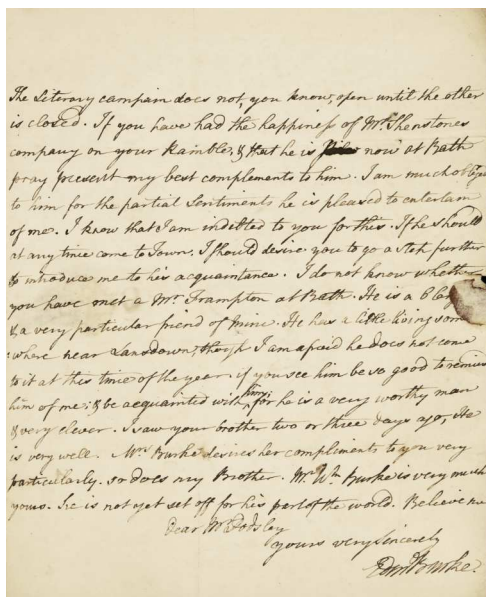 The Literary campain does not, you know, open until the other
is closed. If you have had the happiness of Mr. Shenstones
company on your Ramble, & that he is now at Bath
pray present my best complements to him. I am much obliged
to him for the partial Sentiments he is pleased to entertain
of me. I know that I am indebted to you for this. If he should
at any time come to Town, I should desire you to go a step further
to introduce me to his acquaintance. I do not know whether
you have met a Mr. Frampton at Bath. He is a
& a very particular friend of mine. He has a little living some
where near Lansdown, though I am afraid he does not come
to it at this time of the year. if you see him be so good to remind
him of me; & be acquainted with him; for he is a very worthy man
& very clever. I saw your brother two or three days ago, He
is very well. Mrs Burke desires her compliments to you very
particularly. so does my Brother. Mr. Wm Burke is very much
yours. he is not yet set off for his part of the world. Believe me
Dear Mr Dodsley
yours very Sincerely
Edm Burke.